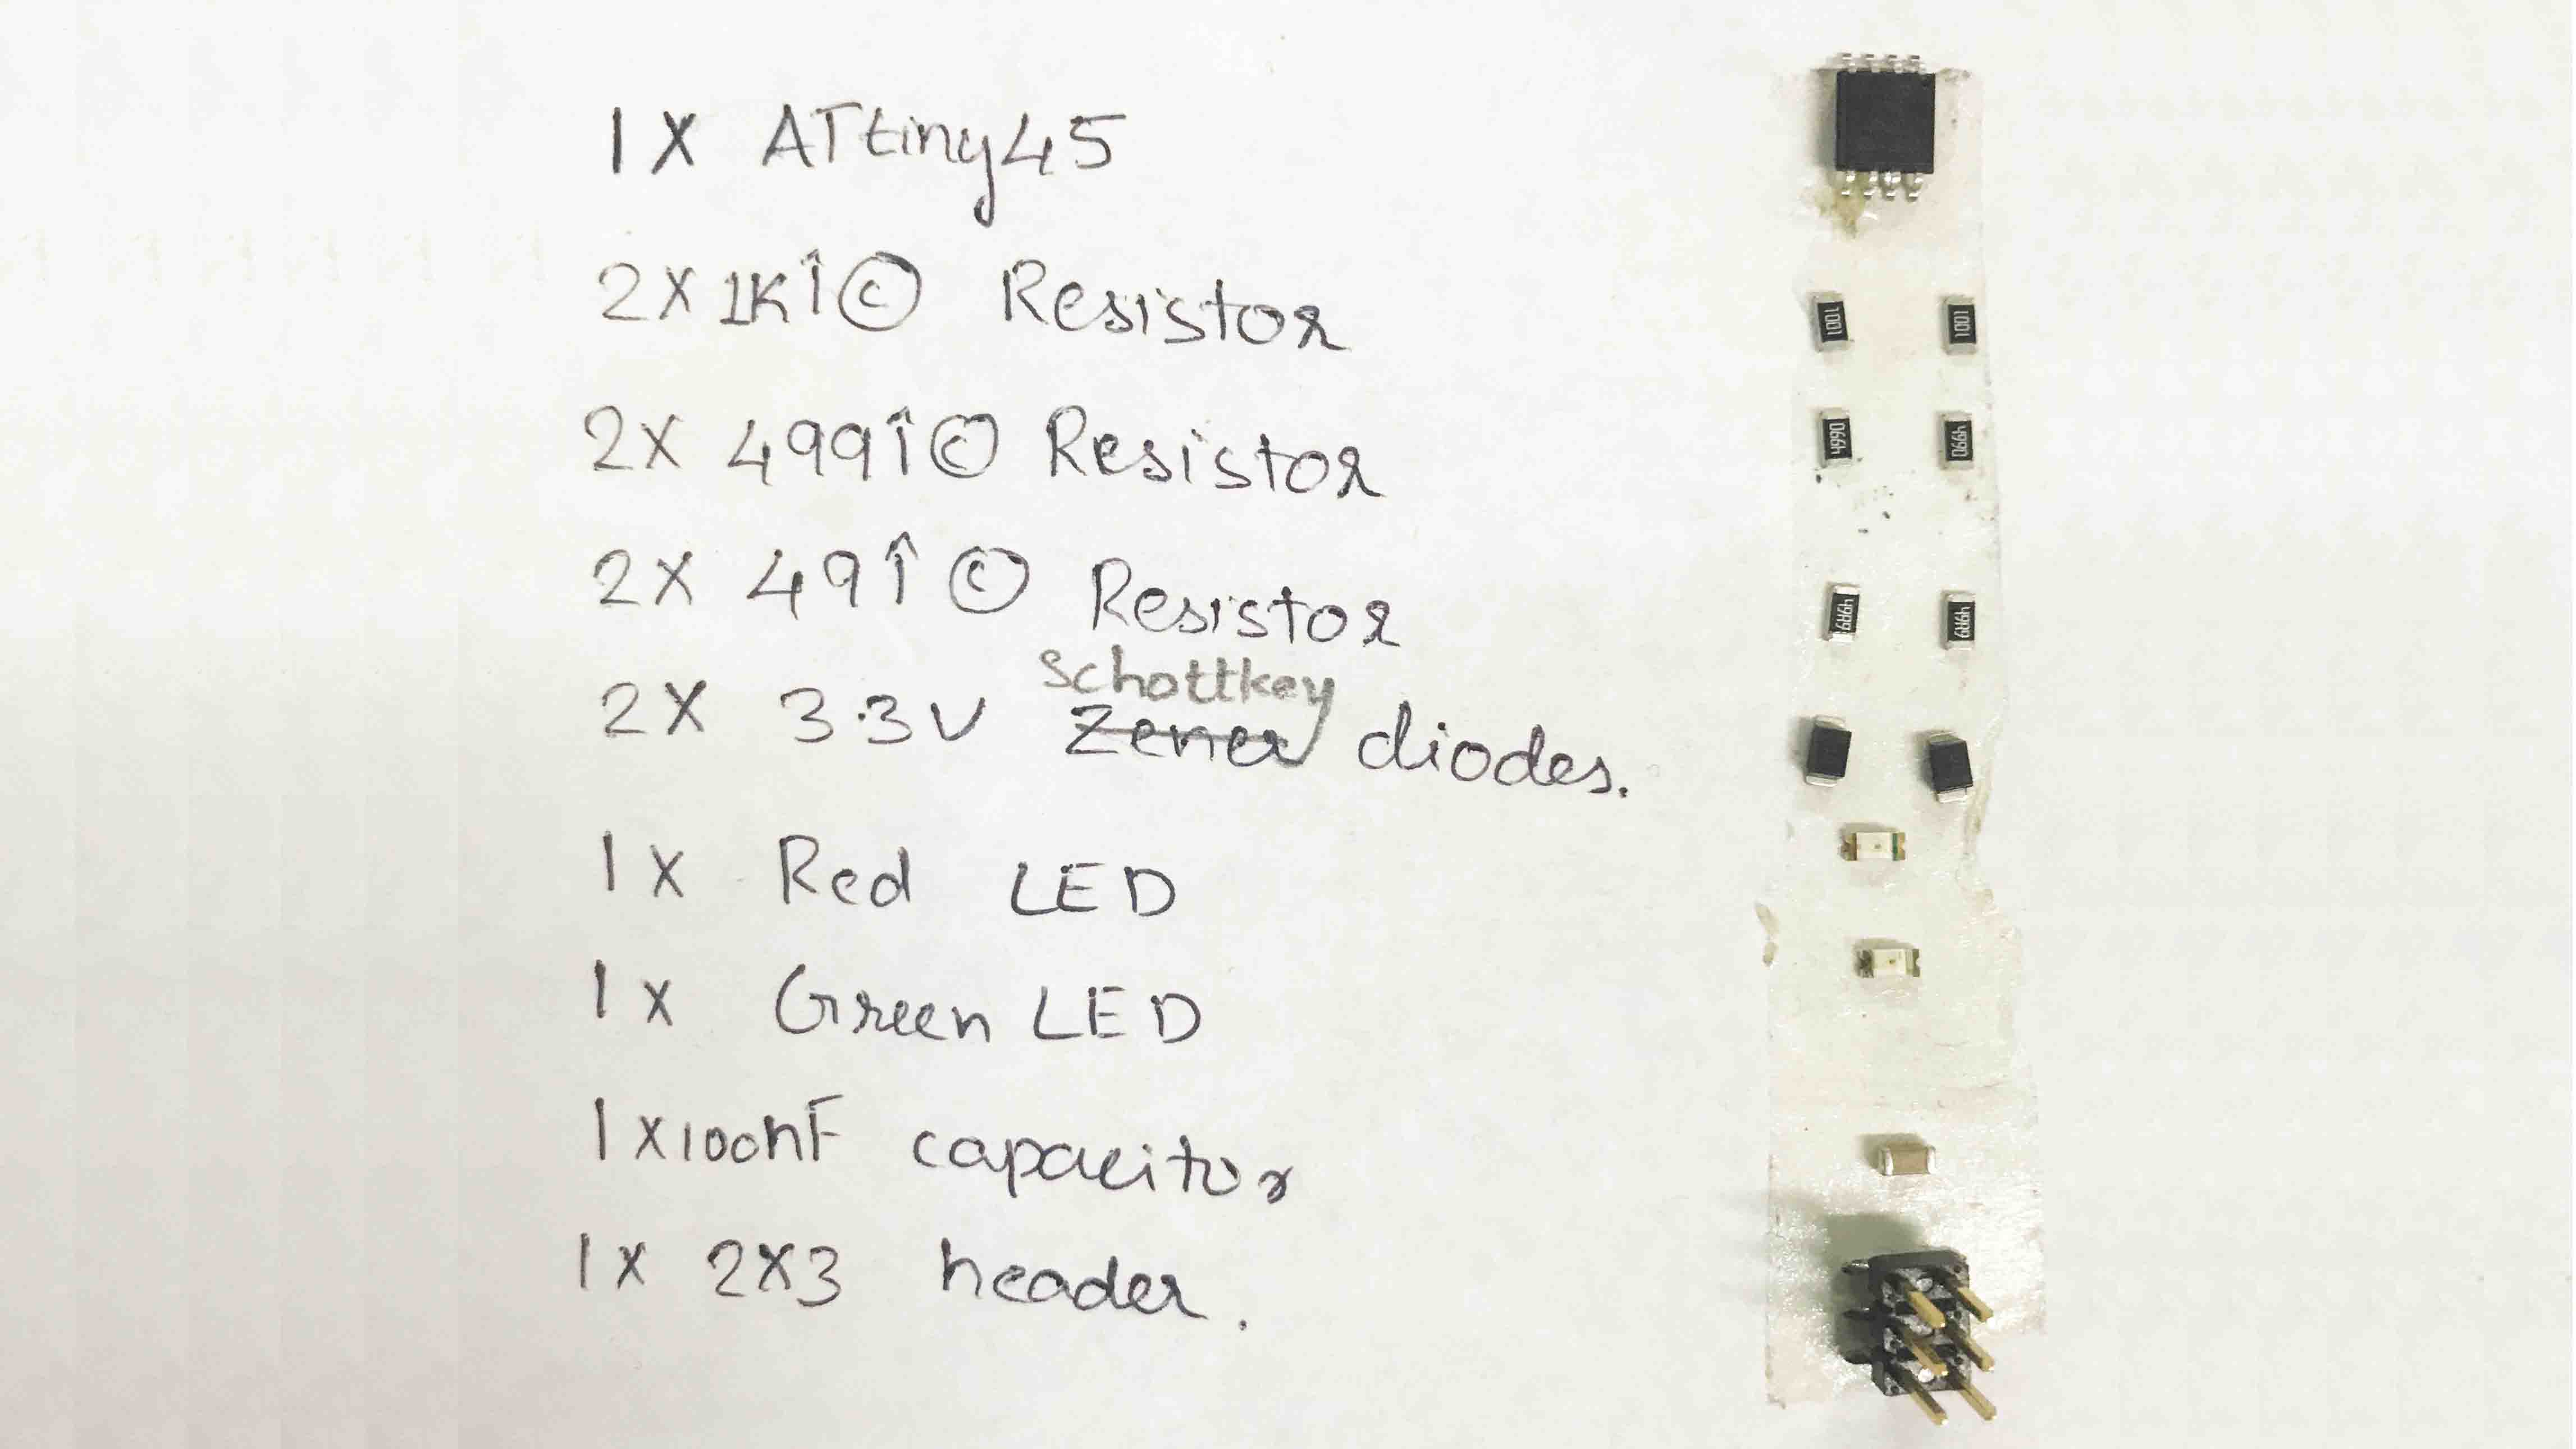 1X ATtiny45
2X 1KÎ© Resistor
2X 499Î© Resistor
2X 49Î© Resistor
schottkey
2X 3.3V Zener diodes.
1X Red LED
1X Green LED
1X100nF capacitor
1X 2X3 header.
1001 1001
4990 4990
49R9 49R9